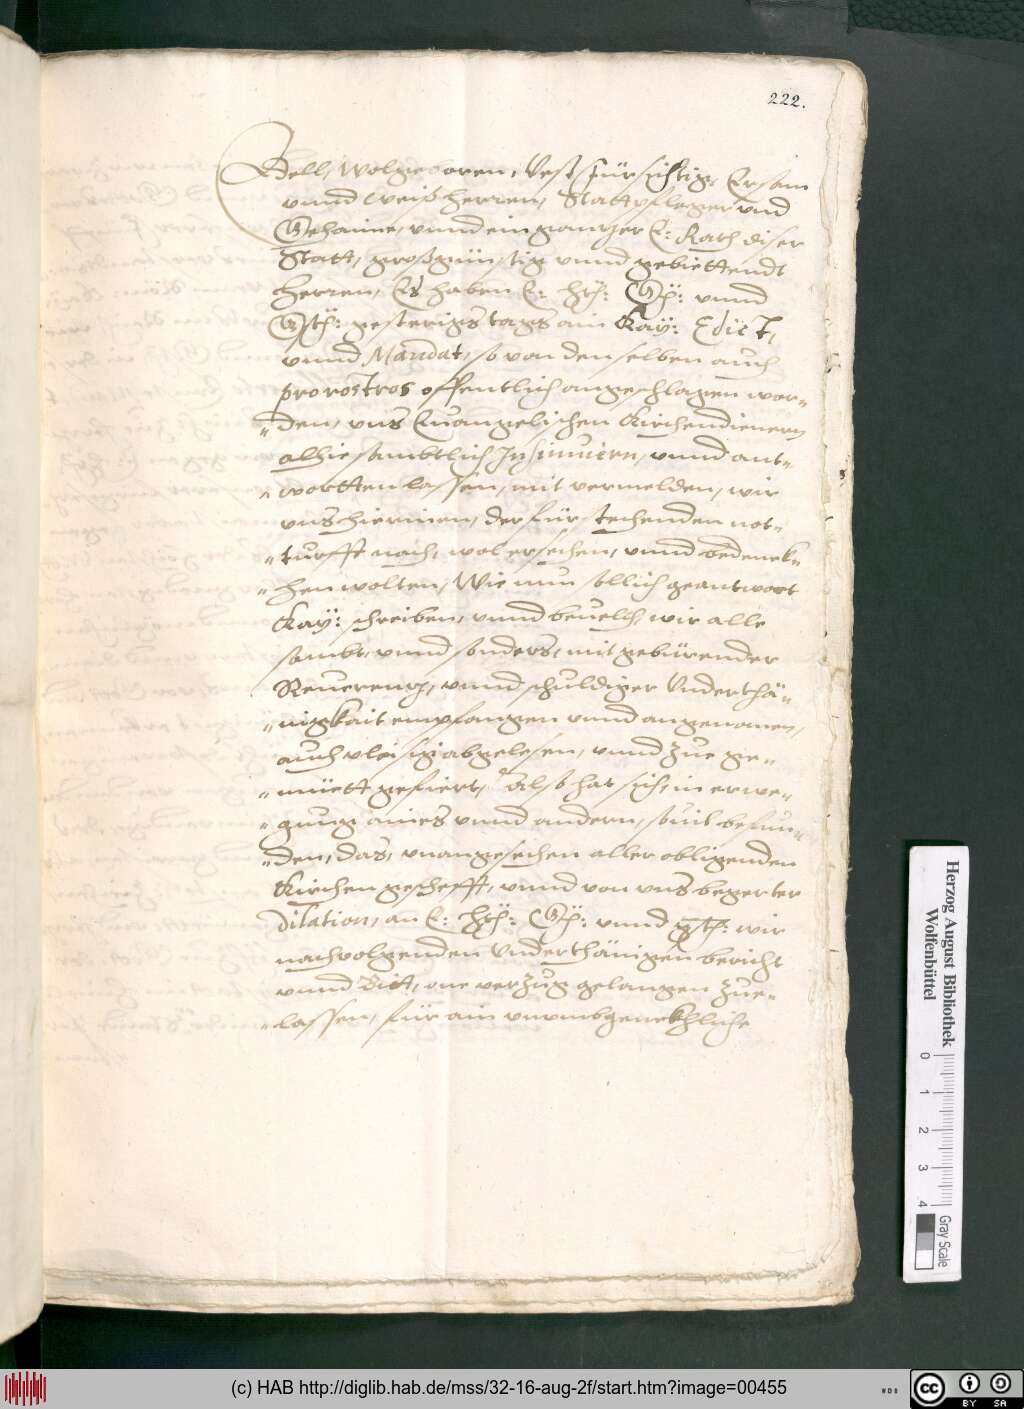 222.
Edell, Wolgeboren, Vest, fürsichtig, Ersam
vnnd weiß herren, Stattpfleger vnd
Gehaime, vnnd ein gantzer E: Rath diser
Statt, großgünstig vnnd gebiettendt
herren, Es haben E: hrl: G: vnnd
G: gesteriges tags ain Kay: Edict,
vnnd Mandat, so von denselben auch
pro rostros offentlich angeschlagen wor=
=den, vns Euangelischen Kirchendienern
alhie sambtlich Insinuiern, vnnd ant=
=wortten lassen, mit vermelden, wir
vns hierinen, der fürstechenden not=
=turfft nach, wol ersechen, vnnd bedenck=
=hen wolten, Wie nun sollich geantwort
Kay: schreiben, vnnd beuelch, wir alle
sambt, vnnd sonders, mit gebürender
Reuerentz, vnnd schuldiger Vnderthä=
=nigkait empfangen vnnd angenomen,
auch vleisig abgelesen, vnnd zue ge=
=müett gefiert, Also hat sich, in erwe=
=gung aines vnnd andern, souil befun=
=den, das, vnangesechen aller obligenden
Kirchen geschefft, vnnd von vns begerter
Dilation, an E: hrl: G: vnnd wir
nachvolgenden Vnderthänigen bericht
vnnd Bitt, one verzug gelangen zue=
=lassen, für ain vnumbgenckhliche
Herzog August Bibliothek
Wolfenbüttel
0 1 2 3 4
Gray Scale
(c) HAB http://diglib.hab.de/mss/32-16-aug-2f/start.htm?image=00455
WDB
cc BY SA